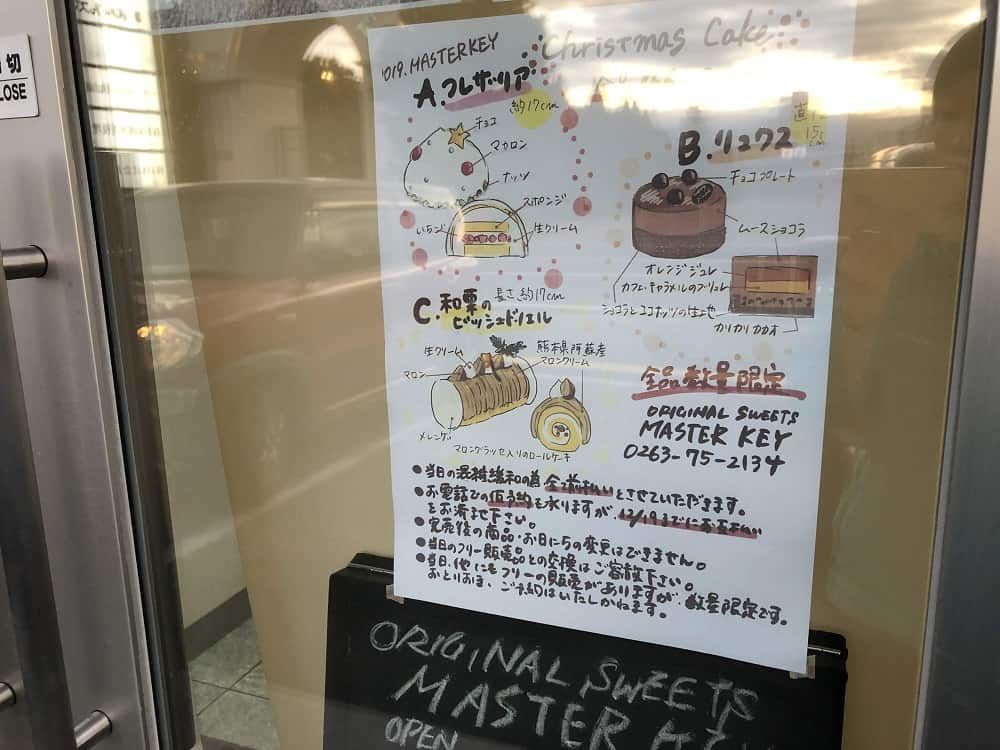 切
LOSE
019. MASTERKEY
Christmas Cake
A. フレザリア
約17cm
チョコ
マカロン
ナッツ
スポンジ
いちご
生クリーム
B. リュクス
直
15
cm
チョコプレート
ムースショコラ
オレンジジュレ
カフェ・キャラメルのブリュレ
ショコラとココナッツの生地
カリカリカカオ
C. 和栗の
ビッシュドノエル
長さ約17cm
生クリーム
熊本県阿蘇産
マロンクリーム
マロン
メレンゲ
マロングラッセ入りのロールケーキ
全品数量限定
ORIGINAL SWEETS
MASTER KEY
0263-75-2134
●当日の混雑緩和の為 全て前払いとさせていただきます。
●お電話での仮予約も承りますが、12/19までにお支払い
をお済ませ下さい。
●完売後の商品・お日にちの変更はできません。
●当日のフリー販売品との交換はご容赦下さい。
●当日、他にもフリーの販売がありますが、数量限定です。
おとりおき、ご予約はいたしかねます。
ORIGINAL SWEETS
MASTER KEY
OPEN